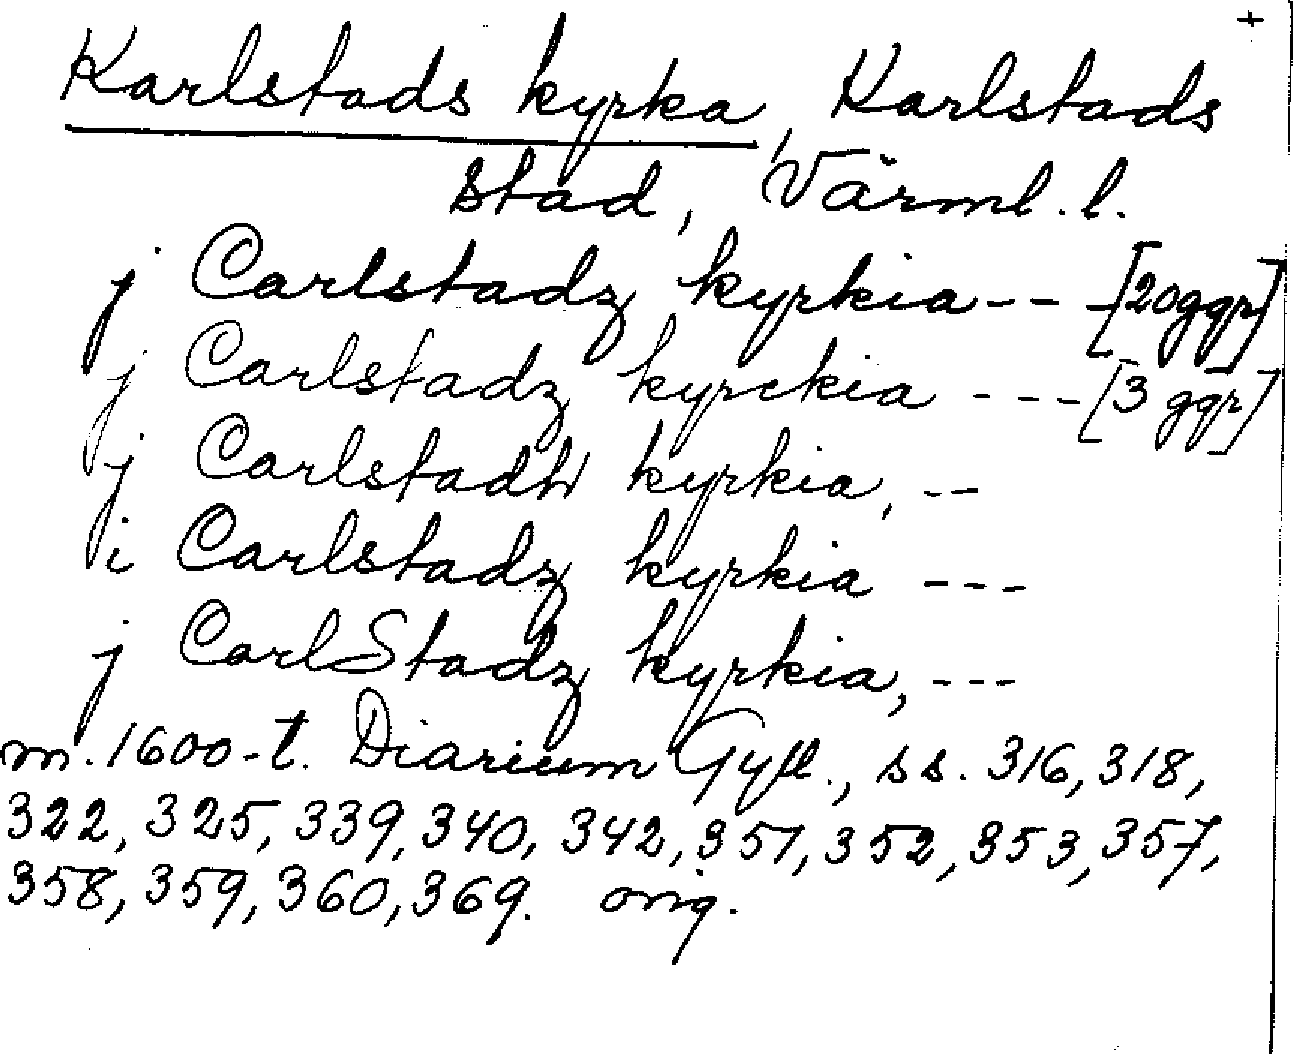 +
Karlstads kyrka, Karlstads
stad, Värml. l.
j Carlstadz kyrkia -- -[20ggr]
j Carlstadz kyrckia ---- [3 ggr]
j Carlstadtz kyrkia, --
i Carlstadz kyrkia ---
j CarlStadz kyrkia, ---
m. 1600-t. Diarium Gyll., ss. 316, 318,
322, 325, 339, 340, 342, 351, 352, 353, 357,
358, 359, 360, 369. orig.